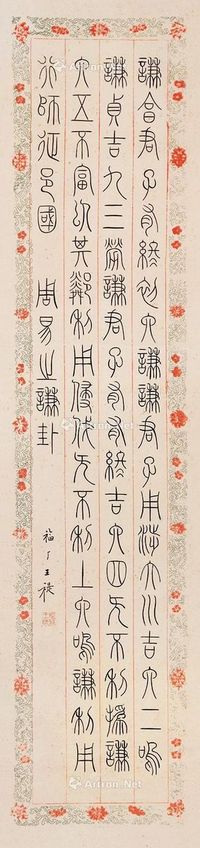 謙亨君子有終初六謙謙君子用涉大川吉六二鳴
謙貞吉九三勞謙君子有終吉六四无不利撝謙
六五不富以其鄰利用侵伐无不利上六鳴謙利用
行師征邑國 周易之謙卦
福厂王禔
Artron.Net